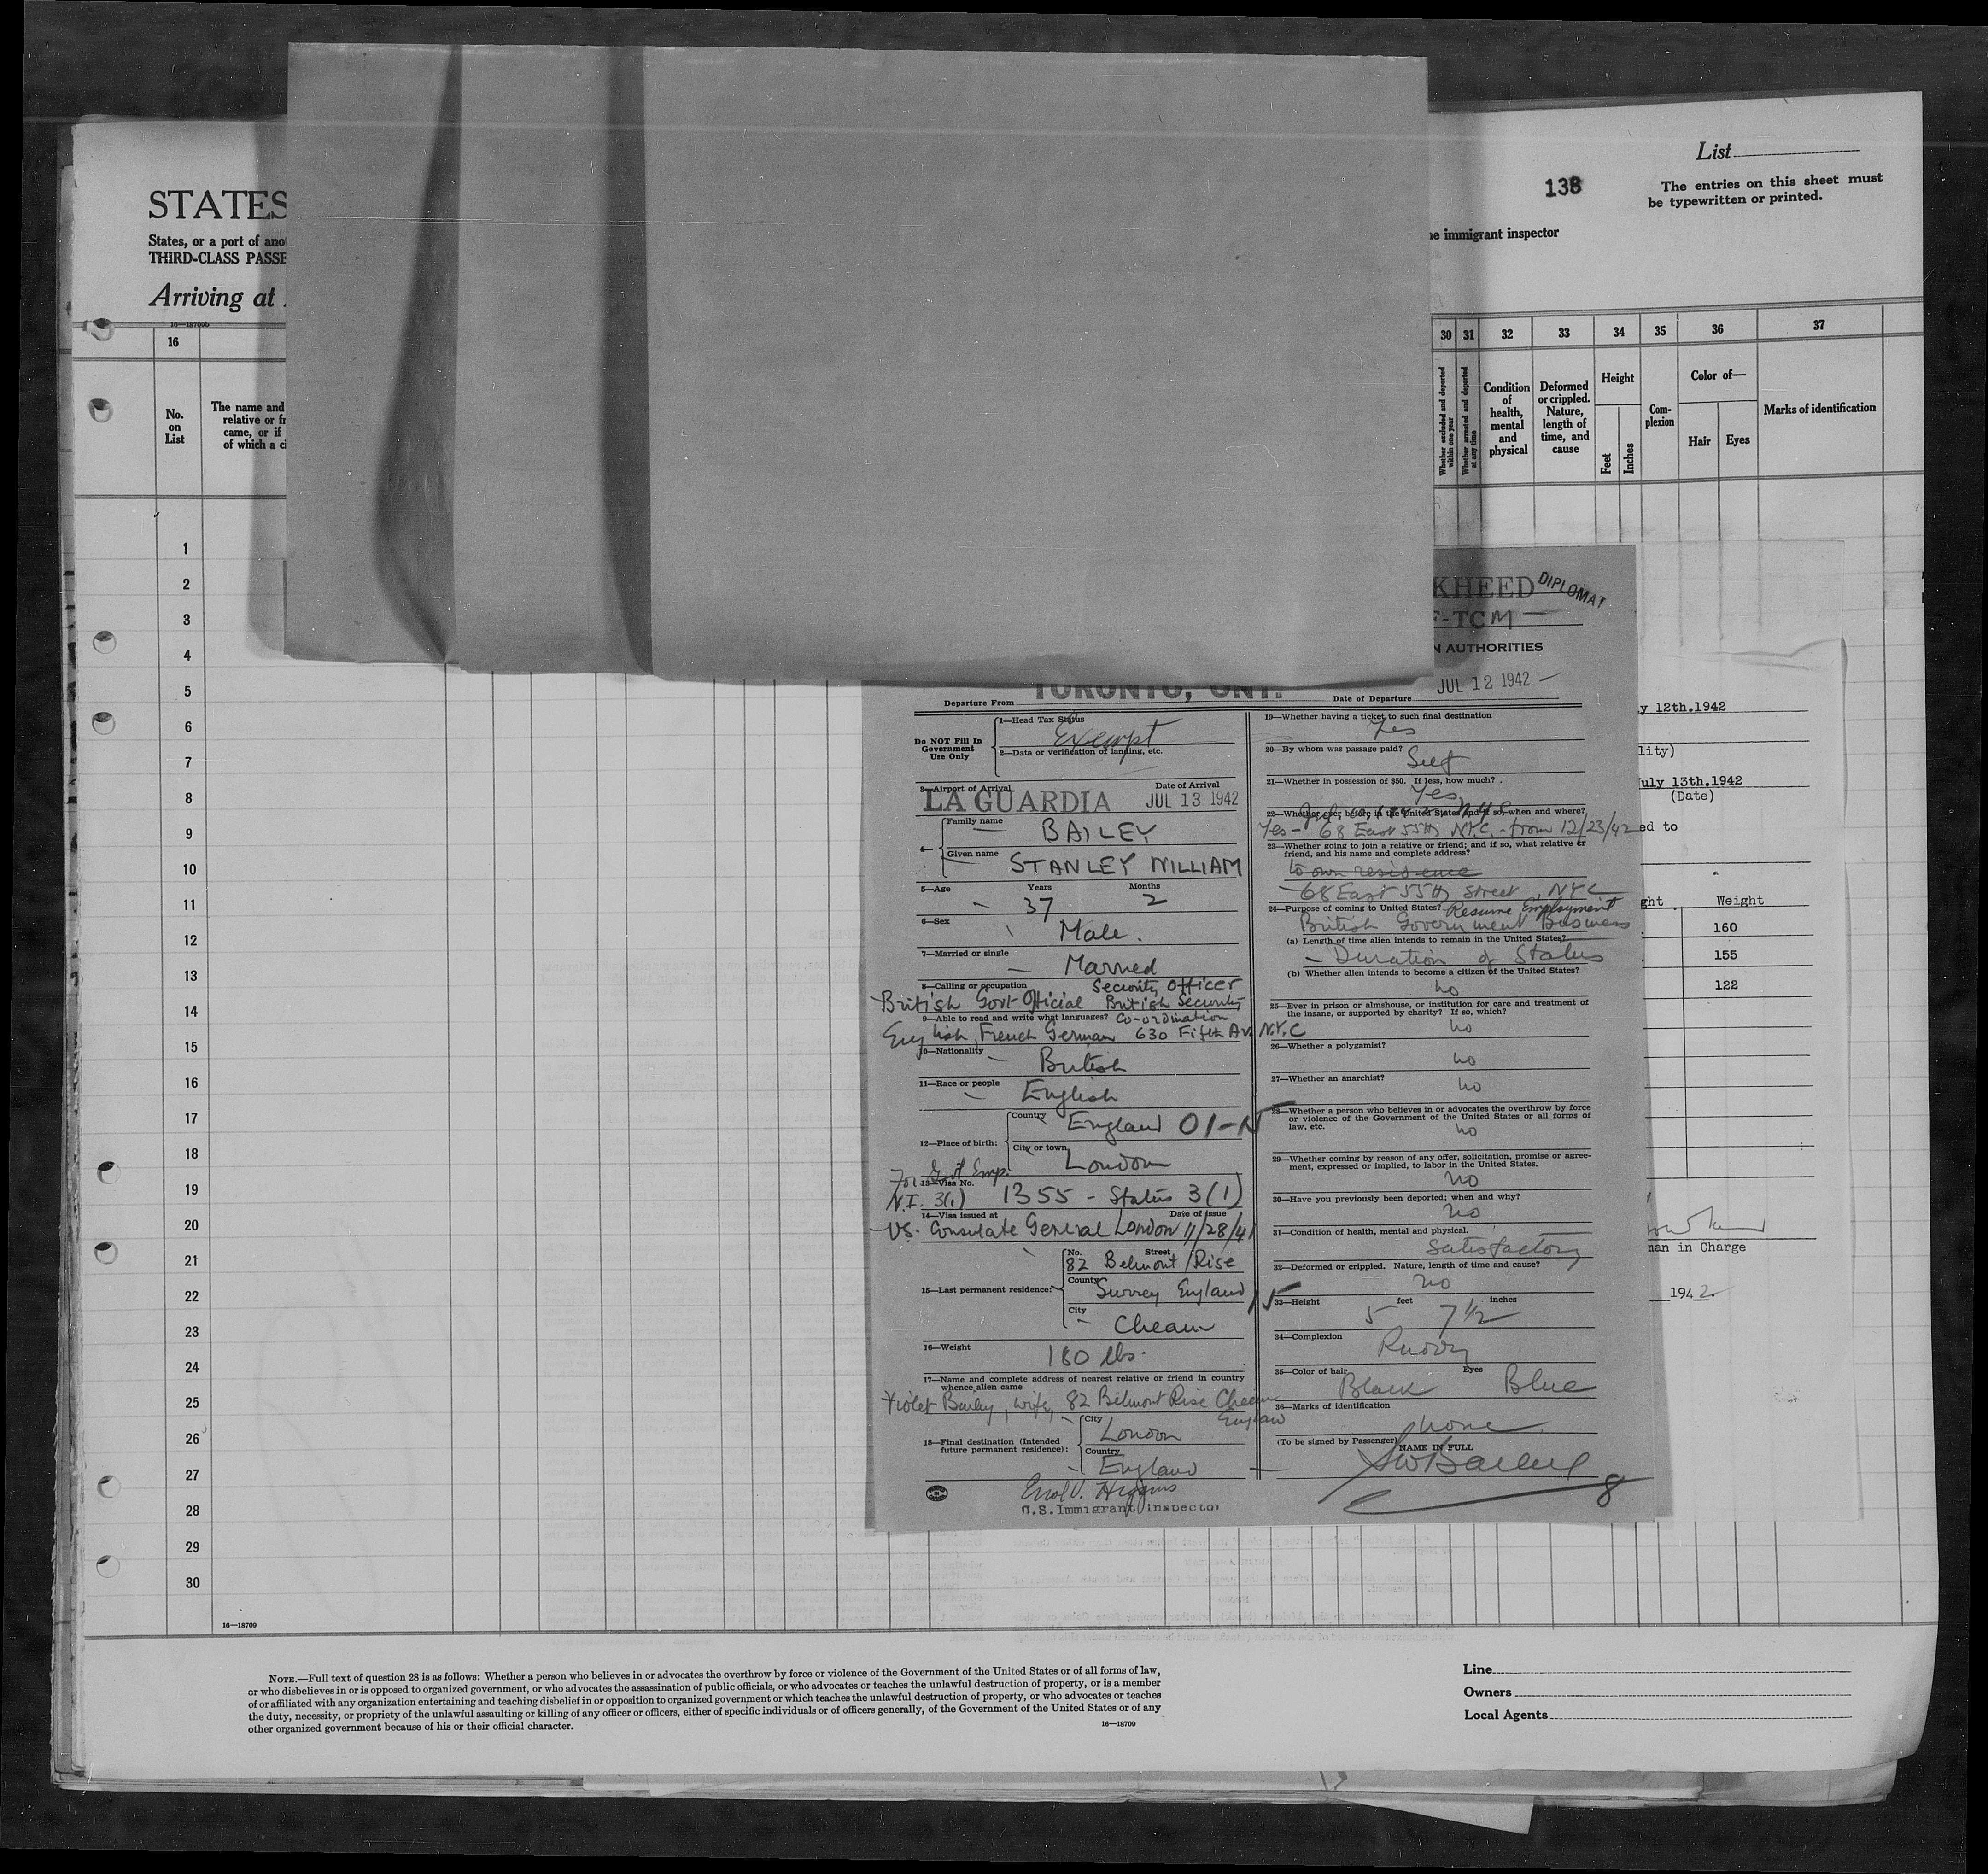 STATES
States, or a port of ano
THIRD-CLASS PASSE
Arriving at
138
List
The entries on this sheet must
be typewritten or printed.
he immigrant inspector
16—18709b
16
No.
on
List
The name and
relative or fr
came, or if
of which a ci
30 31 32 33 34 35 36 37
Whether excluded and deported within one year
Whether arrested and deported at any time
Condition
of
health,
mental
and
physical
Deformed
or crippled.
Nature,
length of
time, and
cause
Height
Feet
Inches
Com-
plexion
Color of—
Hair
Eyes
Marks of identification
1
2
3
4
5
6
7
8
9
10
11
12
13
14
15
16
17
18
19
20
21
22
23
24
25
26
27
28
29
30
16—18709
KHEED DIPLOMAT
F-TCM
N AUTHORITIES
Departure From TORONTO, ONT.
Date of Departure JUL 12 1942
Do NOT Fill In
Government
Use Only
1—Head Tax Status
Exempt
2—Data or verification of landing, etc.
3—Airport of Arrival
LA GUARDIA
Date of Arrival
JUL 13 1942
4— Family name BAILEY
Given name STANLEY WILLIAM
5—Age Years 37 Months 2
6—Sex Male.
7—Married or single Married
8—Calling or occupation Security Officer
British Govt Official British Security
9—Able to read and write what languages? Co-ordination
English, French German 630 Fifth Av. N.Y.C
10—Nationality British
11—Race or people English
12—Place of birth: Country England 01-N
City or town London
For Govt Emp.
13—Visa No.
N.I. 3(1) 1355 - Status 3(1)
14—Visa issued at Date of issue
US. Consulate General London 11/28/41
15—Last permanent residence: No. Street
82 Belmont Rise
County Surrey England
City Cheam
16—Weight 180 lbs.
17—Name and complete address of nearest relative or friend in country
whence alien came
Violet Bailey, wife, 82 Belmont Rise Cheam
England
18—Final destination (Intended
future permanent residence):
City London
Country England
Errol V. Higgins
U.S. Immigrant Inspector
19—Whether having a ticket to such final destination
Yes
20—By whom was passage paid?
Self
21—Whether in possession of $50. If less, how much?
Yes
22—Whether ever before in the United States and if so, when and where?
Yes - 68 East 55th N.Y.C. - from 12/23/42
23—Whether going to join a relative or friend; and if so, what relative or
friend, and his name and complete address?
to own residence
68 East 55th Street, NYC
24—Purpose of coming to United States? Resume Employment
British Government Business
(a) Length of time alien intends to remain in the United States?
Duration of Status
(b) Whether alien intends to become a citizen of the United States?
no
25—Ever in prison or almshouse, or institution for care and treatment of
the insane, or supported by charity? If so, which?
no
26—Whether a polygamist?
no
27—Whether an anarchist?
no
28—Whether a person who believes in or advocates the overthrow by force
or violence of the Government of the United States or all forms of
law, etc.
no
29—Whether coming by reason of any offer, solicitation, promise or agree-
ment, expressed or implied, to labor in the United States.
no
30—Have you previously been deported; when and why?
no
31—Condition of health, mental and physical.
Satisfactory
32—Deformed or crippled. Nature, length of time and cause?
no
33—Height 5 feet 7 1/2 inches
34—Complexion Ruddy
35—Color of hair Black Eyes Blue
36—Marks of identification
none
(To be signed by Passenger) NAME IN FULL
SW Bailey
8
y 12th.1942
lity)
uly 13th.1942
(Date)
ed to
ght Weight
160
155
122
man in Charge
1942.
NOTE.—Full text of question 28 is as follows: Whether a person who believes in or advocates the overthrow by force or violence of the Government of the United States or of all forms of law,
or who disbelieves in or is opposed to organized government, or who advocates the assassination of public officials, or who advocates or teaches the unlawful destruction of property, or is a member
of or affiliated with any organization entertaining and teaching disbelief in or opposition to organized government or which teaches the unlawful destruction of property, or who advocates or teaches
the duty, necessity, or propriety of the unlawful assaulting or killing of any officer or officers, either of specific individuals or of officers generally, of the Government of the United States or of any
other organized government because of his or their official character.
16—18709
Line
Owners
Local Agents